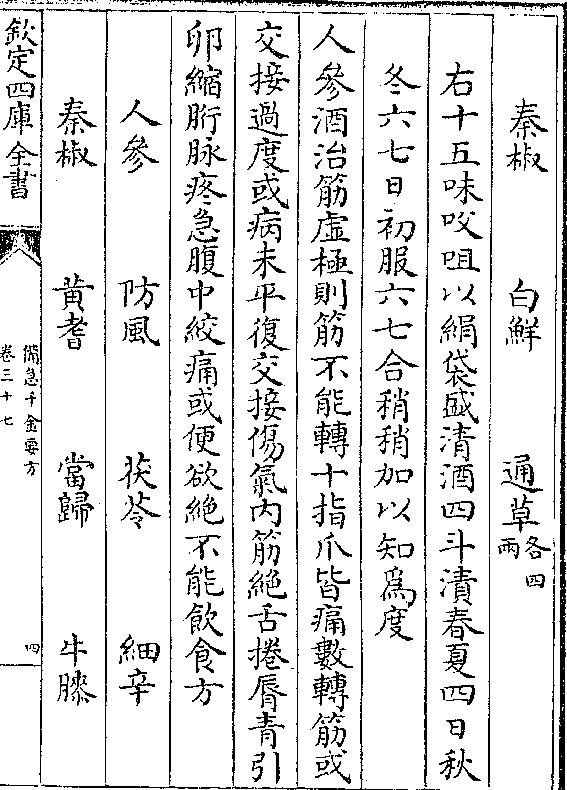 秦椒　白鮮　通草各四兩
右十五味㕮咀以絹袋盛清酒四斗漬春夏四日秋
冬六七日初服六七合稍稍加以知爲度
人參酒治筋虛極則筋不能轉十指爪皆痛數轉筋或
交接過度或病未平復交接傷氣内筋絶舌捲脣青引
卵縮胻脉疼急腹中絞痛或便欲絶不能飲食方
人參　防風　茯苓　細辛
秦椒　黄耆　當歸　牛膝
欽定四庫全書
備急千金要方
卷三十七
四